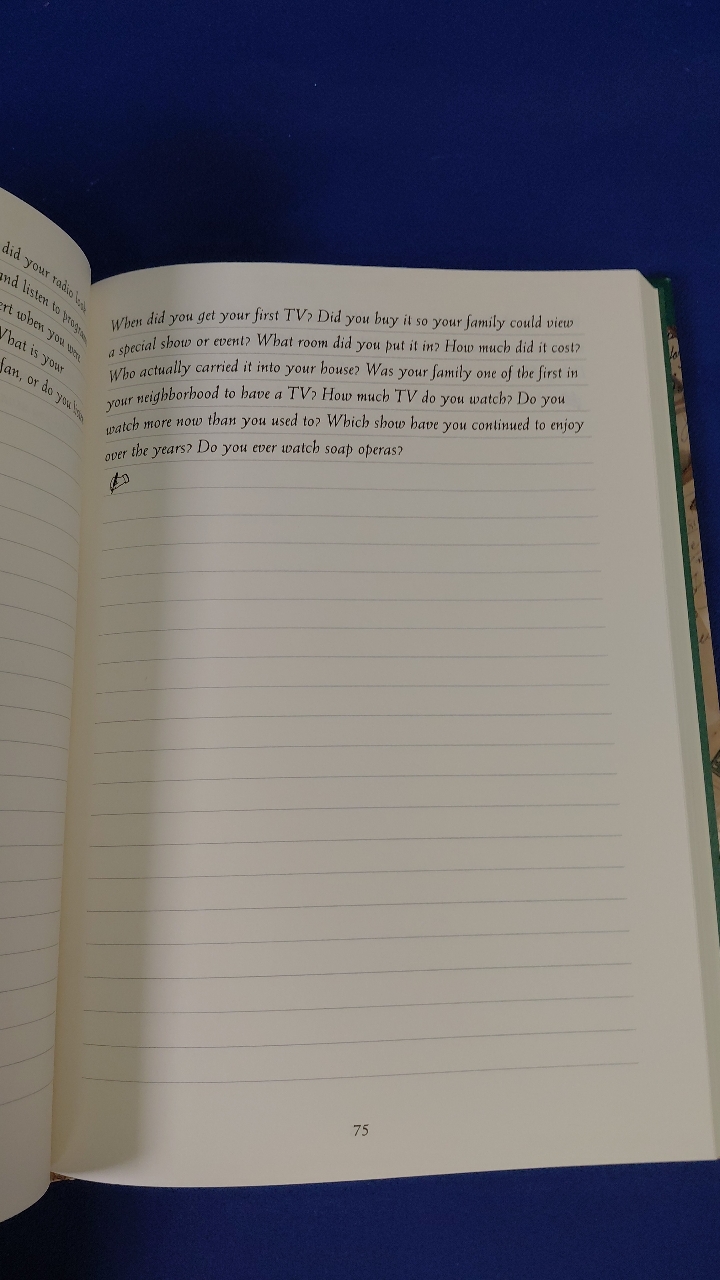 did your radio look
and listen to program
ert when you were
What is your
fan, or do you
When did you get your first TV? Did you buy it so your family could view
a special show or event? What room did you put it in? How much did it cost?
Who actually carried it into your house? Was your family one of the first in
your neighborhood to have a TV? How much TV do you watch? Do you
watch more now than you used to? Which show have you continued to enjoy
over the years? Do you ever watch soap operas?
75